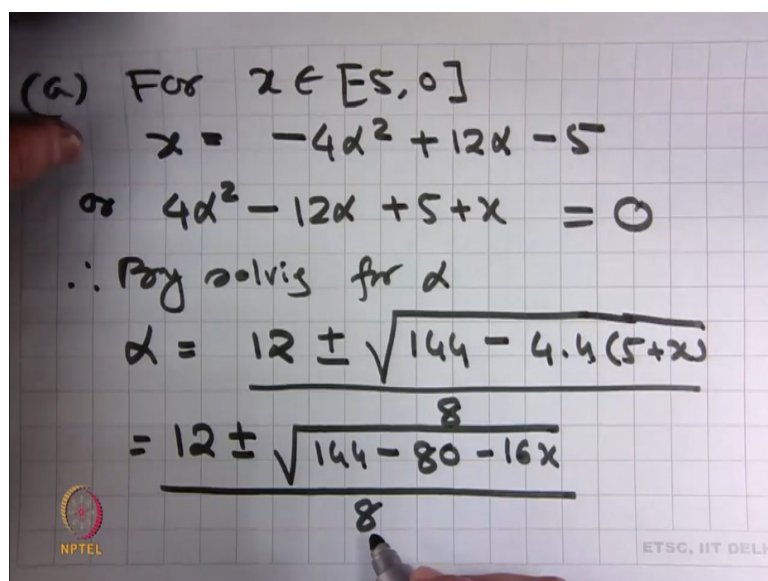 (a) For x ∈ [-5, 0]
x = -4α² + 12α - 5
or 4α² - 12α + 5 + x = 0
∴ By solvig for α
α = 12 ± √144 - 4.4(5+x) / 8
= 12 ± √144 - 80 - 16x / 8
NPTEL
ETSC, IIT DELH